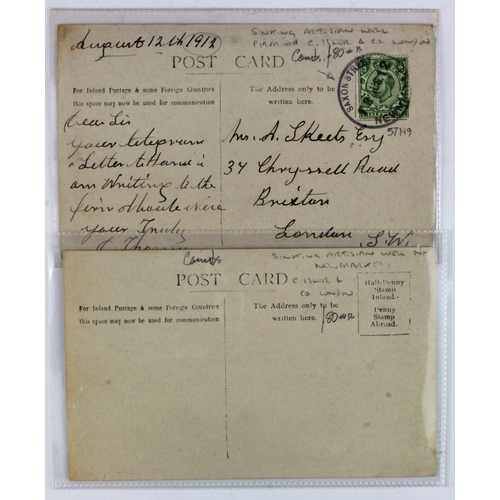 August 12th 1912
SINKING ARTESIAN WELL
FIRM OF C. ISLER & CO. LONDON
Cambs.
£80 or
POST CARD
For Inland Postage & some Foreign Countries
this space may now be used for communication
The Address only to be
written here.
SAXON STREET
NEWMARKET
57N9
Dear Sir
your telegram
& Letter to Hand i
am Writing to the
firm
your Truly
Mr. A. Skeets Esq
34 Chryssell Road
Brixton
London. S.W.
Cambs
SINKING ARTESIAN WELL NR
NEWMARKET.
C. ISLER &
CO. LONDON.
POST CARD
For Inland Postage & some Foreign Countries
this space may now be used for communication
The Address only to be
written here.
£80 or
Half-Penny
Stamp
Inland.
Penny
Stamp
Abroad.